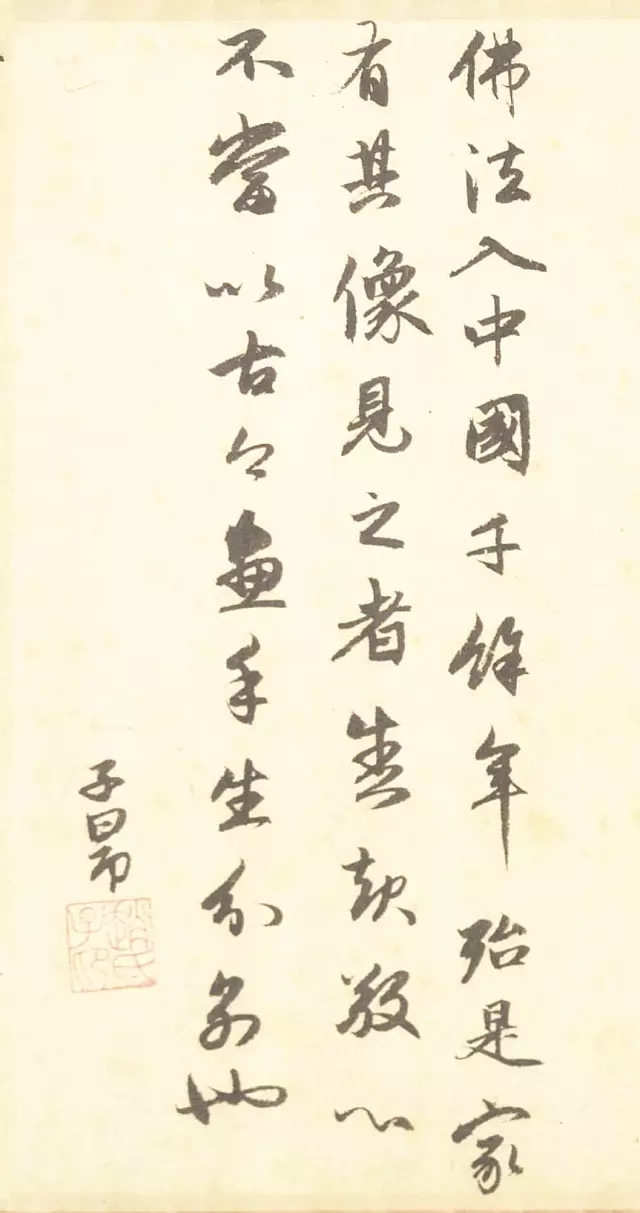 佛法入中國千餘年殆是家
有其像見之者生歡敬心
不當以古今畫手生分別也
子昂
趙氏子昂